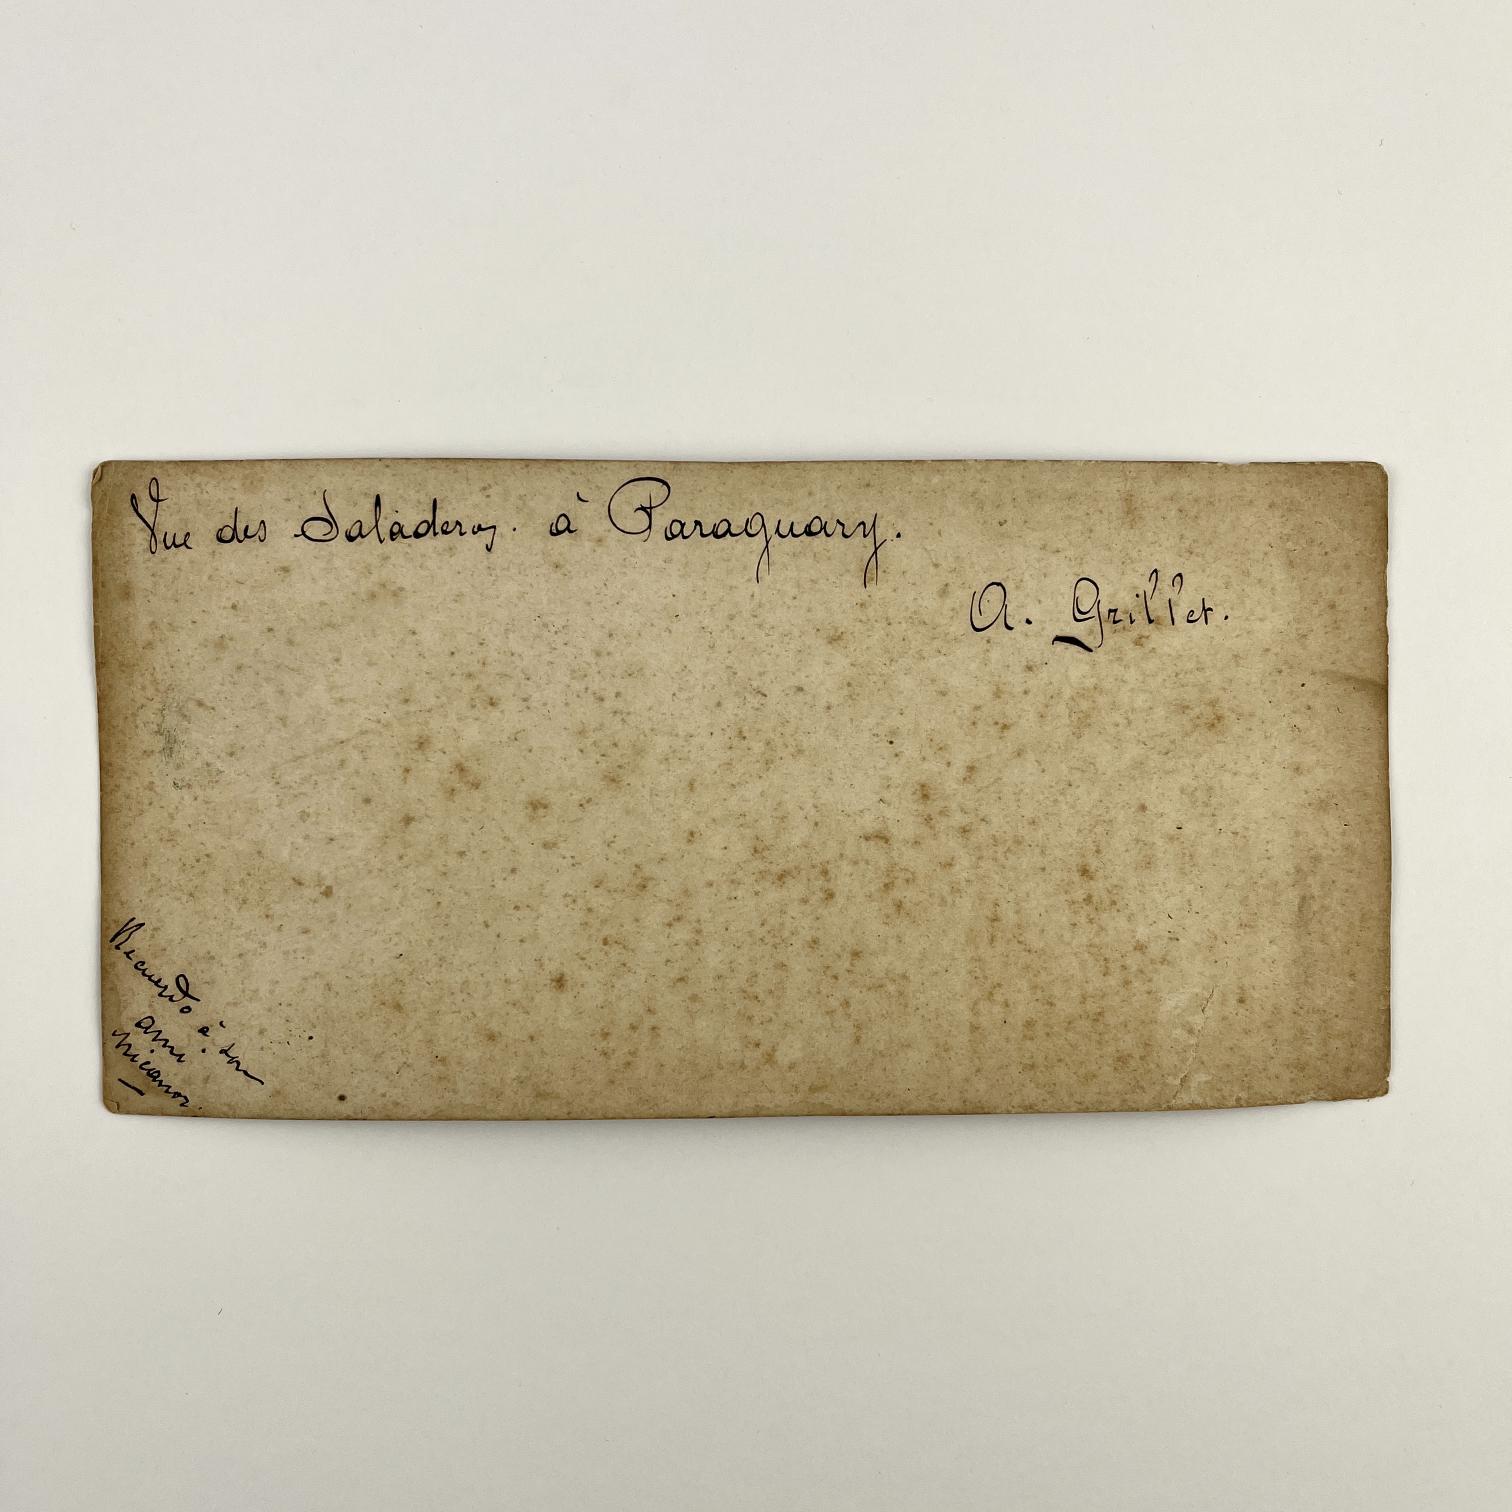 Vue des Saladeros. à Paraguary.
A. Grillet.
Recuerdo à son
ami
Nicanor.